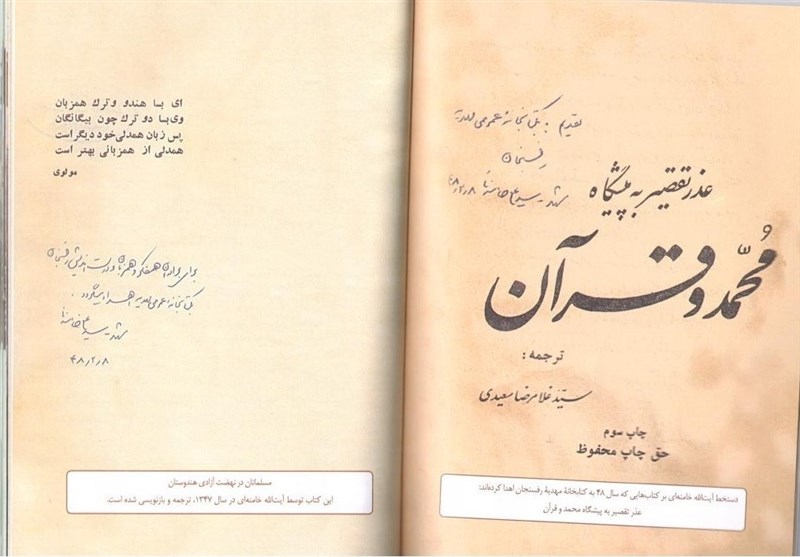 تقدیم به کتابخانهٔ عمومی مهدیه
رفسنجان
مشهد - سید علی خامنه‌ای ۴۸٫۲٫۸
عذر تقصیر به پیشگاه
محمّد و قرآن
ترجمه :
سیّد غلامرضا سعیدی
چاپ سوم
حق چاپ محفوظ
دستخط آیت‌الله خامنه‌ای بر کتاب‌هایی که سال ۴۸ به کتابخانهٔ مهدیهٔ رفسنجان اهدا کرده‌اند:
عذر تقصیر به پیشگاه محمد و قرآن
ای بسا هندو و ترك همزبان
وی بسا دو ترك چون بیگانگان
پس زبان همدلی خود دیگر است
همدلی از همزبانی بهتر است
مولوی
برای برادران همفکر و همزبان و درست اندیش رفسنجان
بکتابخانه عمومی مهدیه اهدا میگردد.
مشهد - سید علی خامنه‌ای
۴۸٫۲٫۸
مسلمانان در نهضت آزادی هندوستان
این کتاب توسط آیت‌الله خامنه‌ای در سال ۱۳۴۷، ترجمه و بازنویسی شده است.